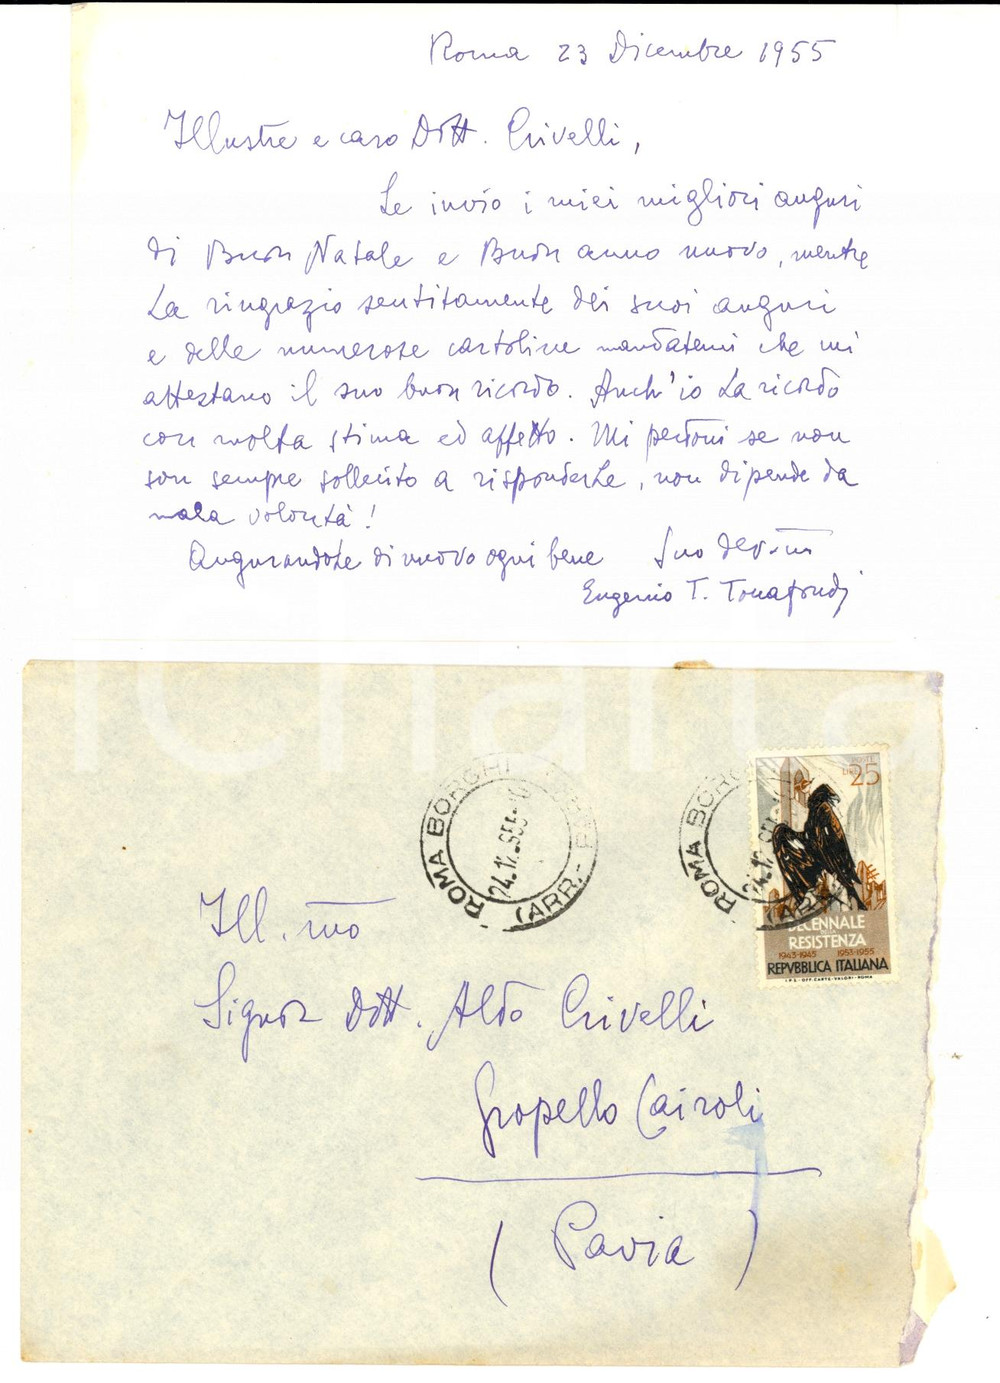 Roma 23 Dicembre 1955
Illustre e caro Dott. Crivelli,
Le invio i miei migliori auguri
di Buon Natale e Buon anno nuovo, mentre
La ringrazio sentitamente dei suoi auguri
e delle numerose cartoline mandatemi che mi
attestano il suo buon ricordo. Anch'io La ricordo
con molta stima ed affetto. Mi perdoni se non
son sempre sollecito a risponderLe, non dipende da
mala volontà!
AugurandoLe di nuovo ogni bene Suo dev.mo
Eugenio T. Tonafondi
ROMA BORGHI
24.12.955
(ARR.-
ROMA BORGHI
24.12.955
(ARR.
POSTE
LIRE 25
DECENNALE
DELLA
RESISTENZA
1943-1945 1953-1955
REPVBBLICA ITALIANA
I.P.S.-OFF.CARTE-VALORI-ROMA
Ill.mo
Signor Dott. Aldo Crivelli
Gropello Cairoli
(Pavia)